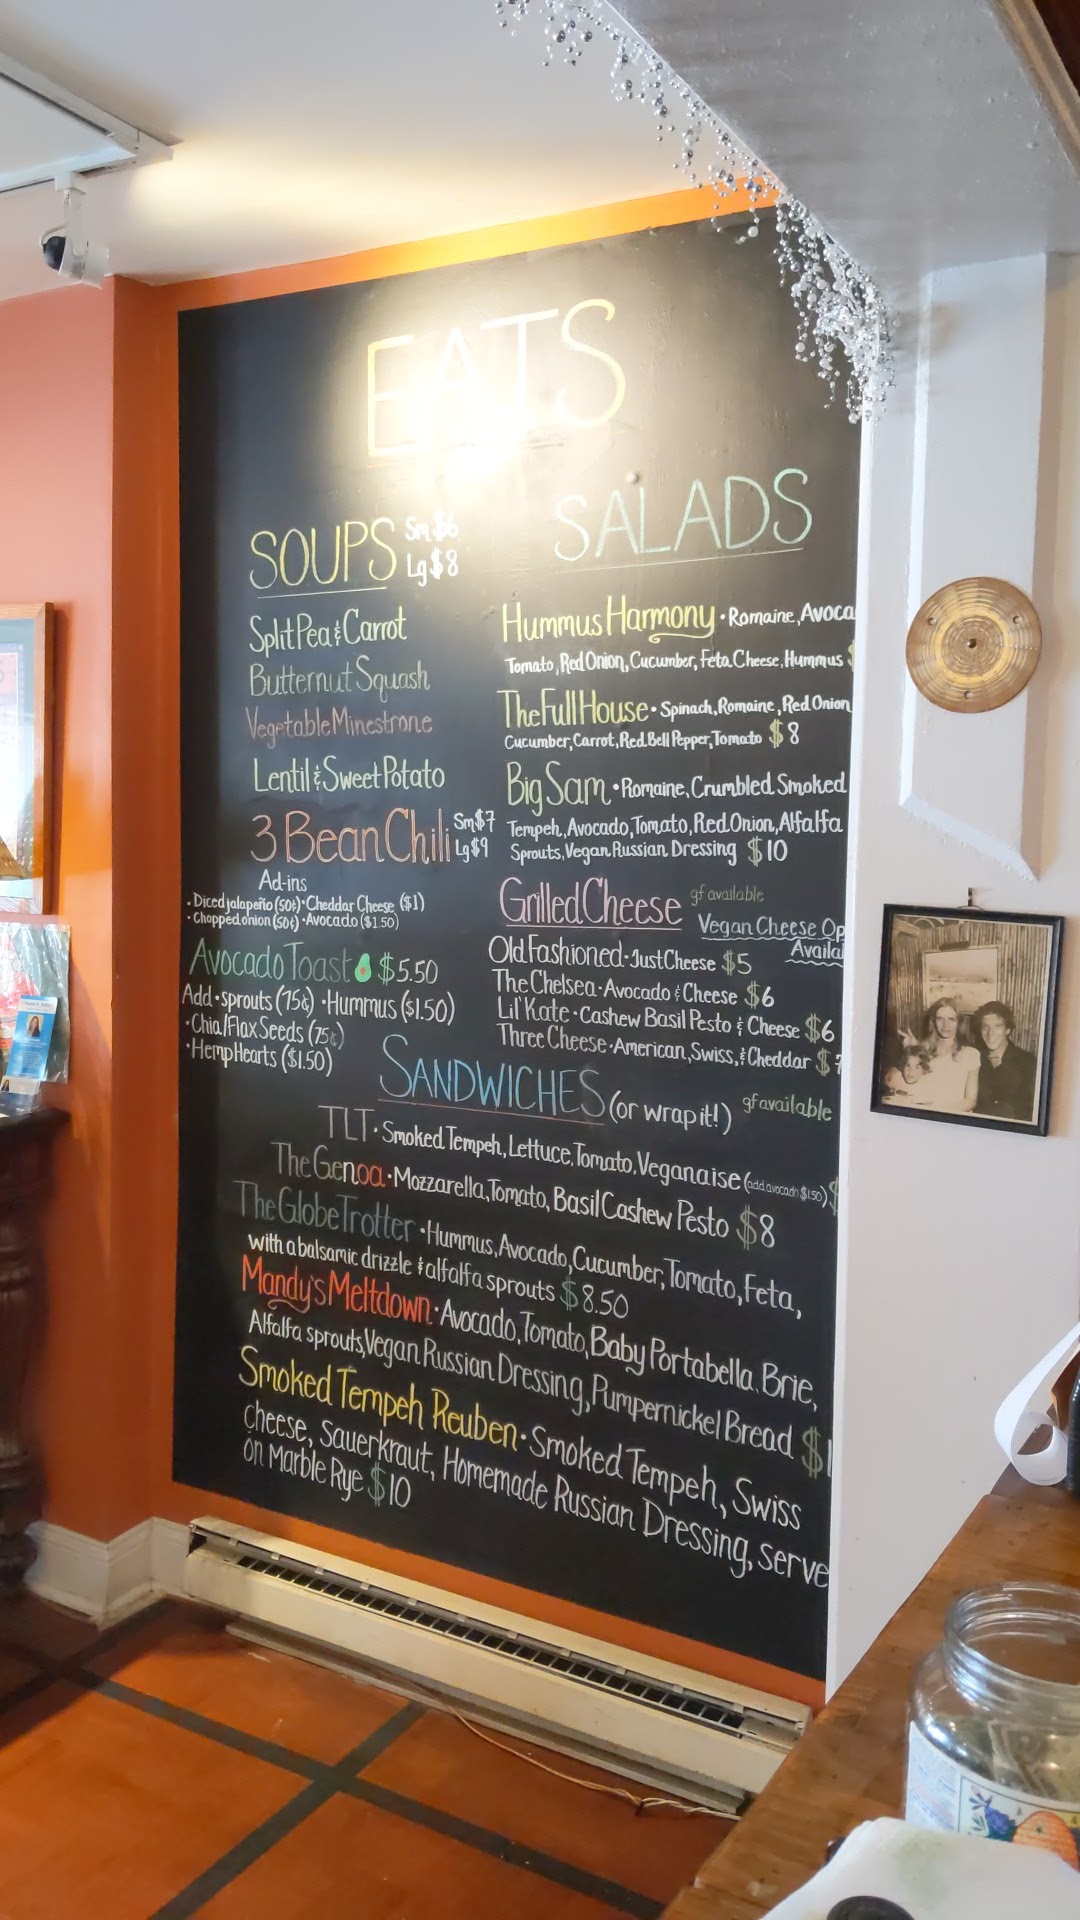 EATS
SOUPS Sm $6
Lg $8
Split Pea & Carrot
Butternut Squash
Vegetable Minestrone
Lentil & Sweet Potato
3 Bean Chili Sm $7
Lg $9
Ad-ins
• Diced jalapeño (50¢) • Cheddar Cheese ($1)
• Chopped onion (50¢) • Avocado ($1.50)
Avocado Toast $5.50
Add • sprouts (75¢) • Hummus ($1.50)
• Chia/Flax Seeds (75¢)
• Hemp Hearts ($1.50)
SALADS
Hummus Harmony • Romaine, Avoca
Tomato, Red Onion, Cucumber, Feta Cheese, Hummus
The Full House • Spinach, Romaine, Red Onion
Cucumber, Carrot, Red Bell Pepper, Tomato $8
Big Sam • Romaine, Crumbled Smoked
Tempeh, Avocado, Tomato, Red Onion, Alfalfa
Sprouts, Vegan Russian Dressing $10
Grilled Cheese gf available
Vegan Cheese Op
Availa
Old Fashioned • Just Cheese $5
The Chelsea • Avocado & Cheese $6
Lil' Kate • Cashew Basil Pesto & Cheese $6
Three Cheese • American, Swiss, & Cheddar $7
SANDWICHES (or wrap it!) gf available
TLT • Smoked Tempeh, Lettuce, Tomato, Veganaise (add avocado $1.50) $
The Genoa • Mozzarella, Tomato, Basil Cashew Pesto $8
The Globe Trotter • Hummus, Avocado, Cucumber, Tomato, Feta,
with a balsamic drizzle & alfalfa sprouts $8.50
Mandy's Meltdown • Avocado, Tomato, Baby Portabella, Brie,
Alfalfa sprouts, Vegan Russian Dressing, Pumpernickel Bread $1
Smoked Tempeh Reuben • Smoked Tempeh, Swiss
cheese, Sauerkraut, Homemade Russian Dressing, serve
on Marble Rye $10